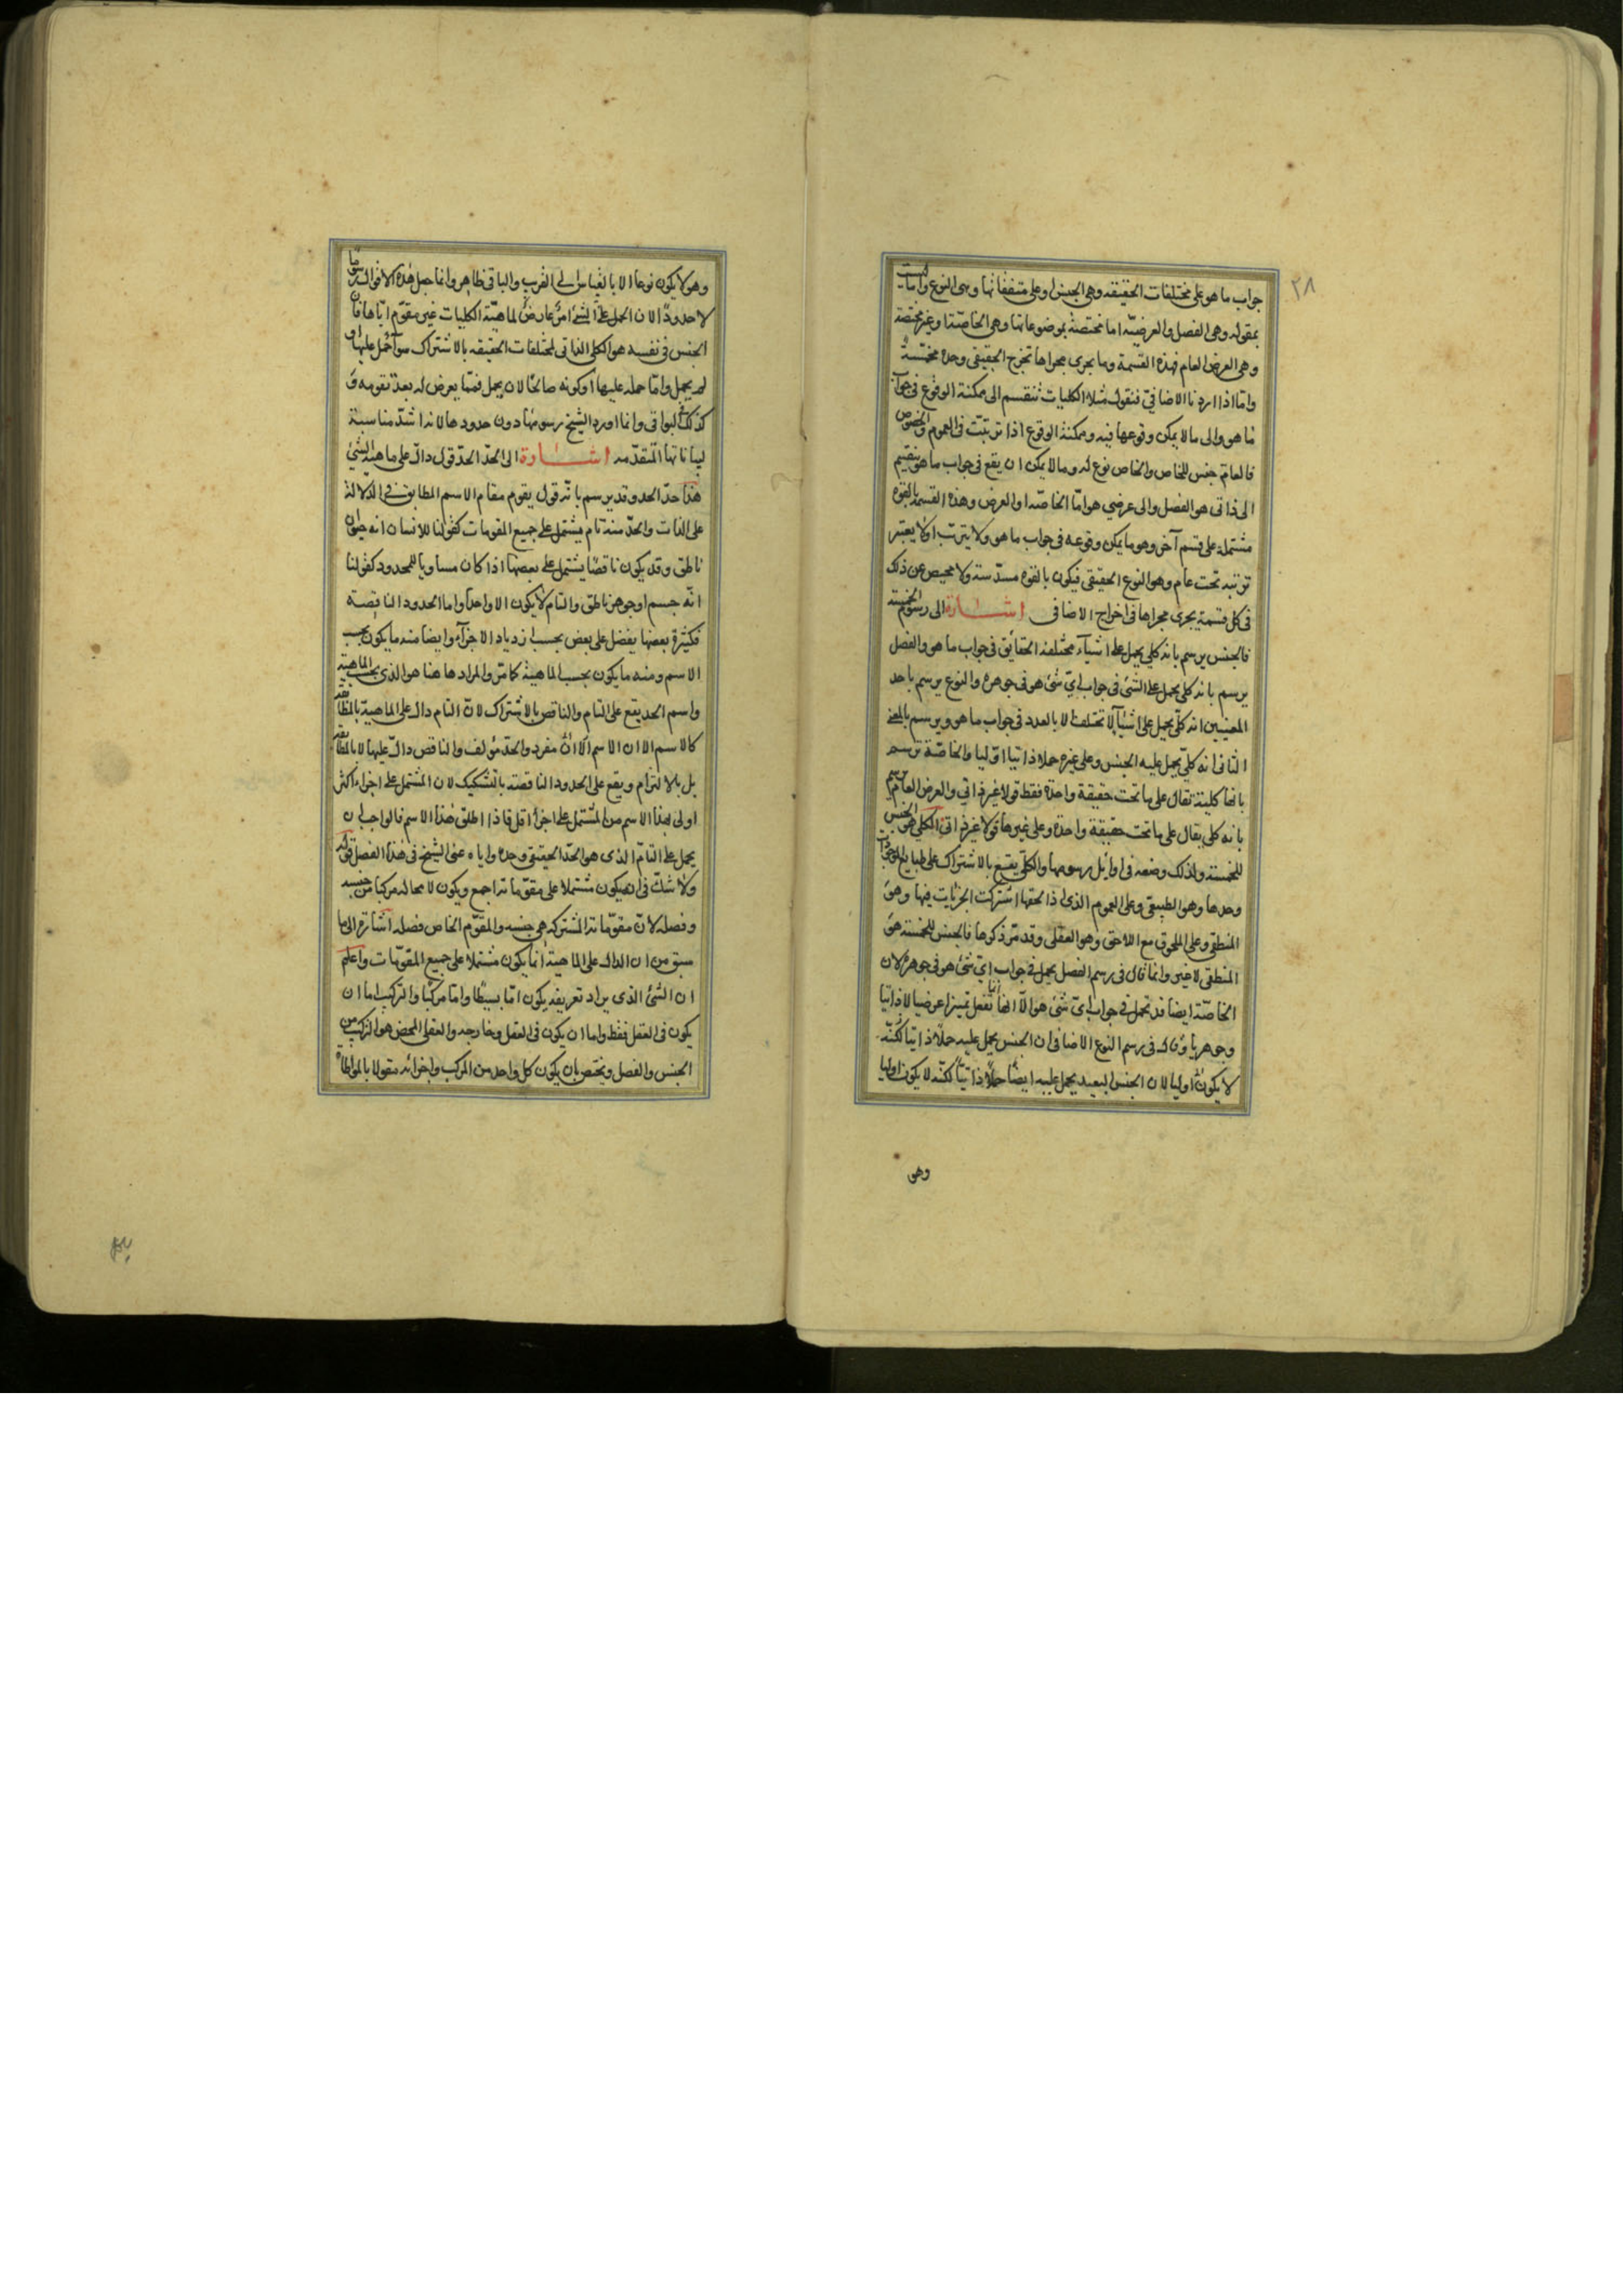 ٢٨
جواب ما هو على مختلفات الحقيقه وهى الجنس او على متفقاتها وهى النوع واما ليست
بمقوله وهى الفصل والعرضيّه اما مختصّة بموضوعاتها وهى الخاصّة او غير مختصة
وهى العرض العام فهذه القسمة وما يجرى مجراها تخرج الحقيقى وحده مخمّسة
وامّا اذا اردنا الاضافىّ فنقول مثلا الكليات تنقسم الى ممكنة الوقوع فى جواب
ما هو والى ما لا يمكن وقوعها فيه وممكنة الوقوع اذا ترتبت فى العموم والخصوص
فالعامّ جنس للخاص والخاص نوع له وما لا يمكن ان يقع فى جواب ما هو ينقسم
الى ذاتى هو الفصل والى عرضي هو امّا الخاصّه او العرض وهذه القسمة بالقوة
مشتملة على قسم آخر وهو ما يمكن وقوعه فى جواب ما هو ولا يترتب او لا يعتبر
ترتبه تحت عام وهو النوع الحقيقى فيكون بالقوه مسدّسة ولا محيص عن ذلك
فى كل قسمة يجرى مجراها فى اخراج الاضافى اشــارة الى رسوم الخمسة
فالجنس يرسم بانه كلي يحمل على اشيآء مختلفة الحقايق فى جواب ما هو والفصل
يرسم بانه كلى يحمل على الشئ فى جواب اىّ شئ هو فى جوهره والنوع يرسم باحد
المعنيين انه كلّى يحمل على اشيآء لا تختلف الا بالعدد فى جواب ما هو ويرسم بالمعنى
الثانى انه كلّي يحمل عليه الجنس وعلى غيره حملا ذاتيا اوّليا والخاصّة ترسم
بانها كلية تقال على ما تحت حقيقة واحدة فقط قولا غير ذاتي والعرض العام يرسم
بانه كلى يقال على ما تحت حقيقة واحدة وعلى غيرها قولا غير ذاتى الكلي هو الجنس
للخمسة ولذلك وضعه فى اوائل رسومها والكلّى يقع بالاشتراك على طبايع الموجودات
وحدها وهو الطبيعى وعلى العموم الذى اذا لحقها اشتركت الجزئيات فيها وهو
المنطقى وعلى الملحوق مع اللاحق وهو العقلى وقد مرّ ذكرها فالجنس للخمسة هو
المنطقى لا غير وانما قال فى رسم الفصل يحمل فى جواب اىّ شئ هو فى جوهره لان
الخاصّة ايضا قد تحمل فى جواب اىّ شئ هو الّا انها انما تفعل تميزا عرضيا لا ذاتيا
وجوهريا وقال فى رسم النوع الاضافى ان الجنس يحمل عليه حملا ذاتيا لكنّه
لا يكون اوليا لان الجنس البعيد يحمل عليه ايضًا حملًا ذاتيًا لكنّه لا يكون اوليا
وهو
وهو لا يكون نوعا الا بالقياس الى القريب والباقى ظاهر وانما جعل هذه الاقوال رسومًا
لا حدودًا لان الحمل على الشئ امرٌ عارضٌ لماهيّة الكليات غير مقوّم ايّاها فان
الجنس فى نفسه هو الكلى الذاتى لمختلفات الحقيقه بالاشتراك سوآء حُمل عليها او
لم يحمل وامّا حمله عليها او كونه صالحًا لان يحمل فممّا يعرض له بعد تقومه و
كذلك فى البواقى وانما اورد الشيخ رسومها دون حدودها لانه اشدّ مناسبة
لبياناتها المتقدّمه اشــارة الى الحدّ الحدّ قول دالّ على ماهية الشئ
هذا حدّ الحد وقد يرسم بانّه قول يقوم مقام الاسم المطابق فى الدلالة
على الذات والحدّ منه تام يشتمل على جميع المقومات كقولنا للانسان انه حيوان
ناطق وقد يكون ناقصًا يشتمل على بعضها اذا كان مساويا للمحدود كقولنا
انّه جسم او جوهر ناطق والتام لا يكون الا واحدا واما الحدود الناقصة
فكثيرة بعضها يفضل على بعض بحسب ازدياد الاجزآء وايضا منه ما يكون بحسب
الاسم ومنه ما يكون بحسب الماهية كما مرّ والمراد هاهنا هو الذى بحسب الماهية
واسم الحد يقع على التام والناقص بالاشتراك لانّ التام دال على الماهية بالمطابقة
كالاسم الا ان الاسم مفرد والحدّ مؤلف والناقص دالّ عليها لا بالمطابقة
بل بالالتزام ويقع على الحدود الناقصة بالتشكيك لان المشتمل على اجزاء اكثر
اولى بهذا الاسم من المشتمل على اجزاء اقل فاذا اطلق هذا الاسم فالواجب ان
يحمل على التامّ الذى هو الحدّ الحقيقى وحده واياه عنى الشيخ فى هذا الفصل قوله
ولا شكّ فى انه يكون مشتملا على مقوّماته اجمع ويكون لا محاله مركبا من جنسه
وفصله لانّ مقوّماته المشتركه هى جنسه والمقوّم الخاص فصله اشارة الى ما
سبق من ان الدال على الماهية انما يكون مشتملا على جميع المقوّمات واعلم
ان الشئ الذى يراد تعريفه يكون امّا بسيطًا وامّا مركّبا والتركيب اما ان
يكون فى العقل فقط واما ان يكون فى العقل وخارجه والعقلى المحض هو التركيب من
الجنس والفصل ويختص بان يكون كل واحد من المركب واجزائه مقولا بالمواطأة